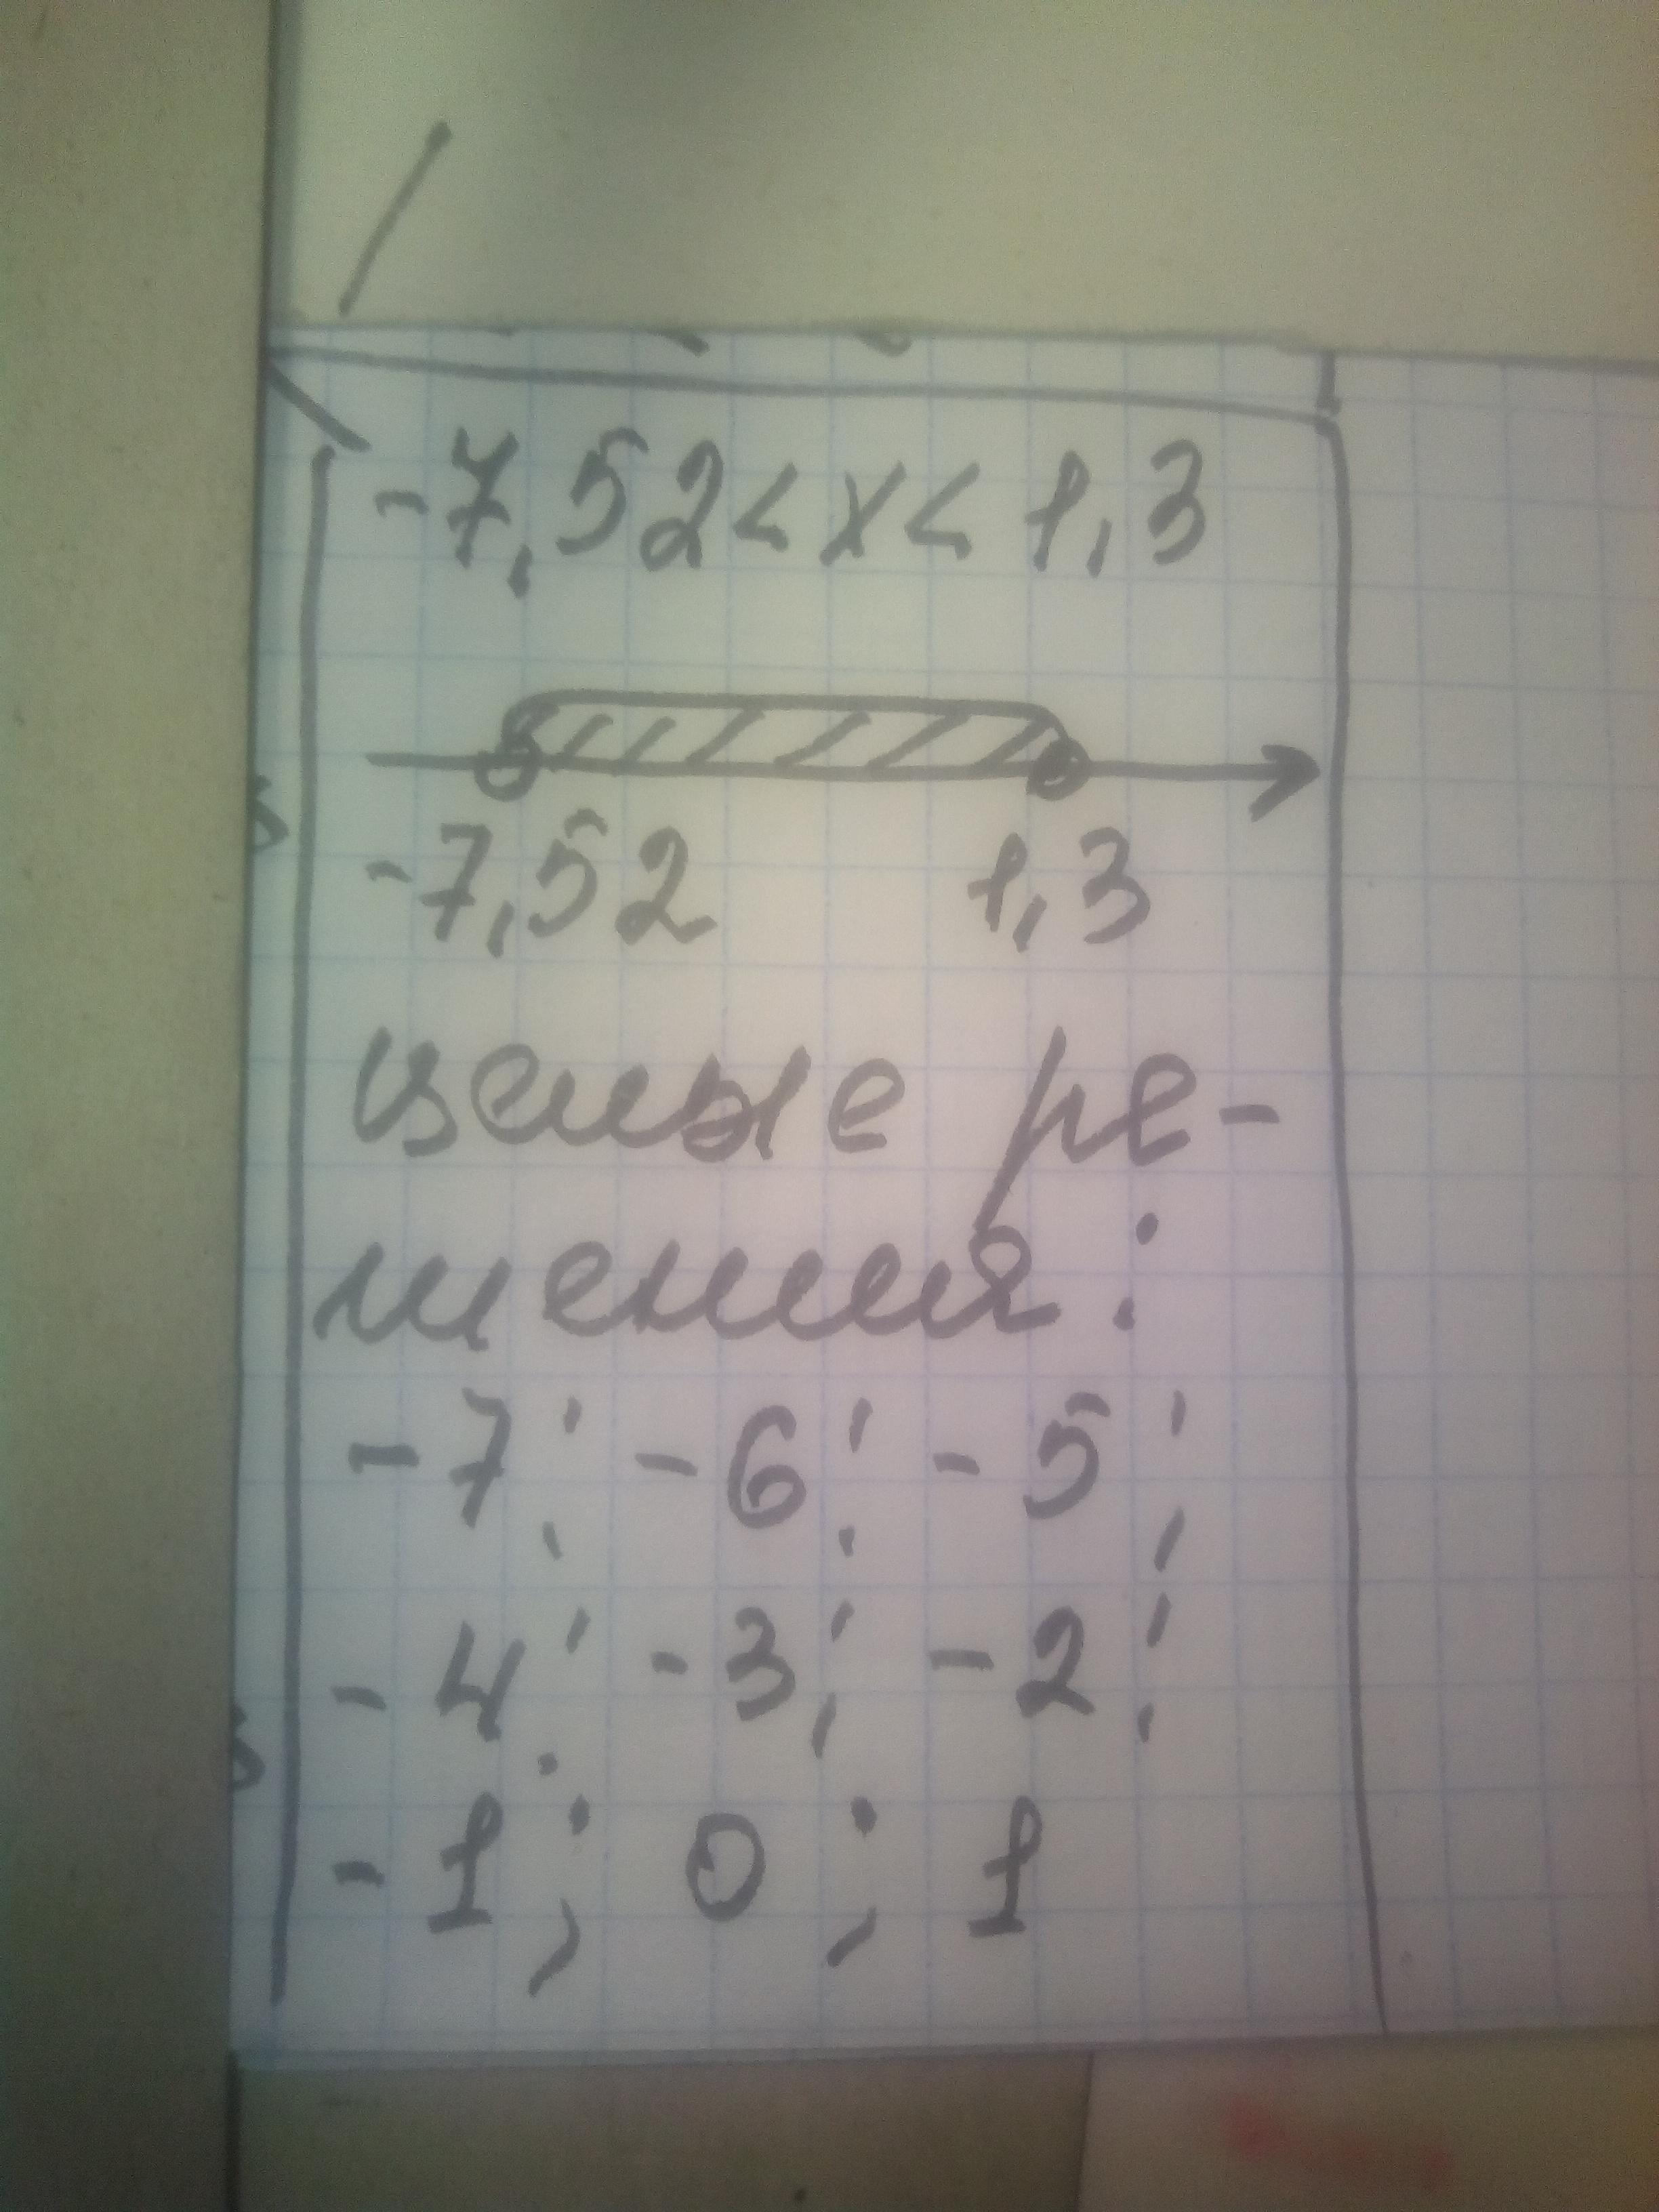 -7,52<x<1,3
-7,52 1,3
целые ре-
шения:
-7; -6; -5;
-4; -3; -2;
-1; 0; 1